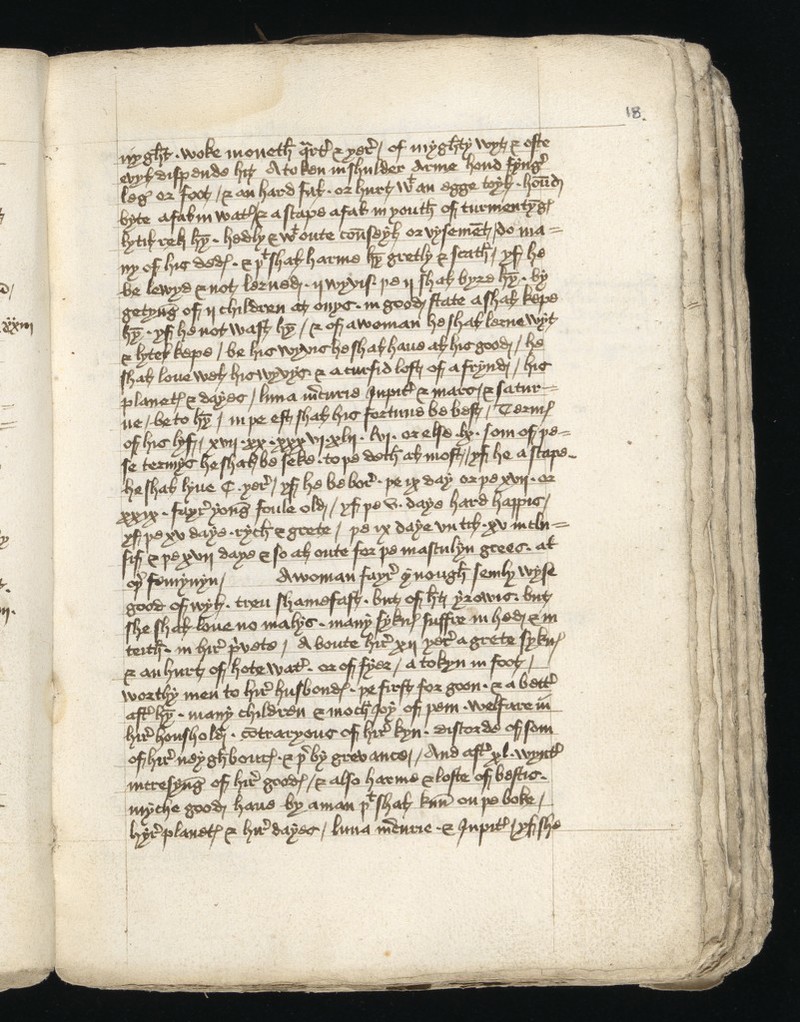 18.
nyght · woke moneth qrt & yer / of myghty wyt & ofte
euyl dispende hit A token in shulder Arme hond fyng
leg or foot / & an hard fal · or hurt wt an egge toyl · hound
byte a fal in wat & a scape a fal in youth of turmentyg
lytil rek hy · hedly & wt oute counseyl or vysement / do ma=
ny of his ded · & þt shal harme hy gretly & scath / yf he
be lewyd & not lerned · ii wyvis · þe ii shal byre hy · by
getyng of ii children at onys · in good state a shal kepe
hy · yf he not wast hy / & of a woman he shal lerne wyt
& kepe / be his wyvis he shal haue al his good / he
shal loue wel his wyvys & a cursid loste of a frynd / his
planet & dayes / luna mcurie Jupit & mars & satur=
ne / be to hy / in þe est shal his fortune be best / Term
of his lyf / xvii · xx · xxxvi · xlii · lvi · or else lx · som of þe=
se termys he shal be seke · to þe deth al most / yf he a scape
he shal lyue C · yer / yf he be bor · þe ix day or þe xvii · or
xxix · fayr yong foule old / yf þe v · daye hard happis /
yf þe xv daye · rych & grete / þe ix daye vn tth · xv
& þe xvii daye & so al oute for þe masculyn grees · al
oþ femynyn / A woman fayr ynough semly wyse
good of wyl · treu shamefast · but of hti yrowis · but
she shal loue no malys · many sykn suffre in hed & in
teith · in hir pvete / A boute hir xii yer a grete sykn
& an hurt of hote wat · or of fyer / a tokyn in foot /
worthy men to hir husbond · þe first for goon · & a bett
aft hy · many children & moch joy of þem · welfare in
hir houshold · cotraryous of hir kyn · discorde of som
of hir neyghbour · & þ by grevance / And aft xl · wynt
incresyng of hir good / & also harme & loste of bestis ·
myche good haue by a man þt shal kun on þe boke /
hyr planet & hir dayes / luna mcurie · & Jupit / yf she